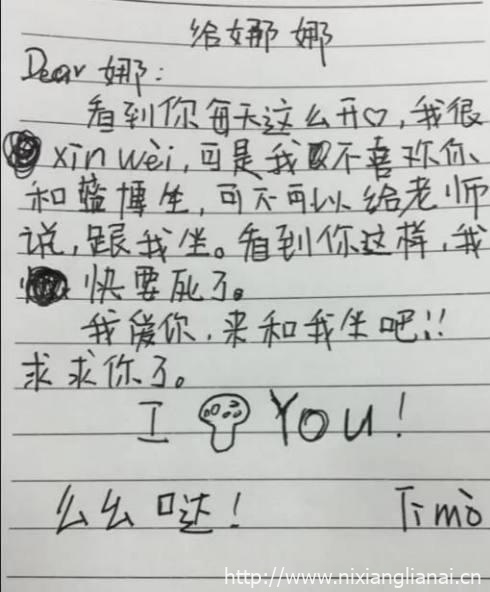 给娜娜
Dear 娜：
看到你每天这么开♡，我很
xin wèi，可是我不喜欢你
和博生，可不可以给老师
说，跟我坐。看到你这样，我
快要死了。
我爱你，来和我坐吧！！
求求你了。
I You！
么么哒！ Timo
http://www.nixianglianai.cn